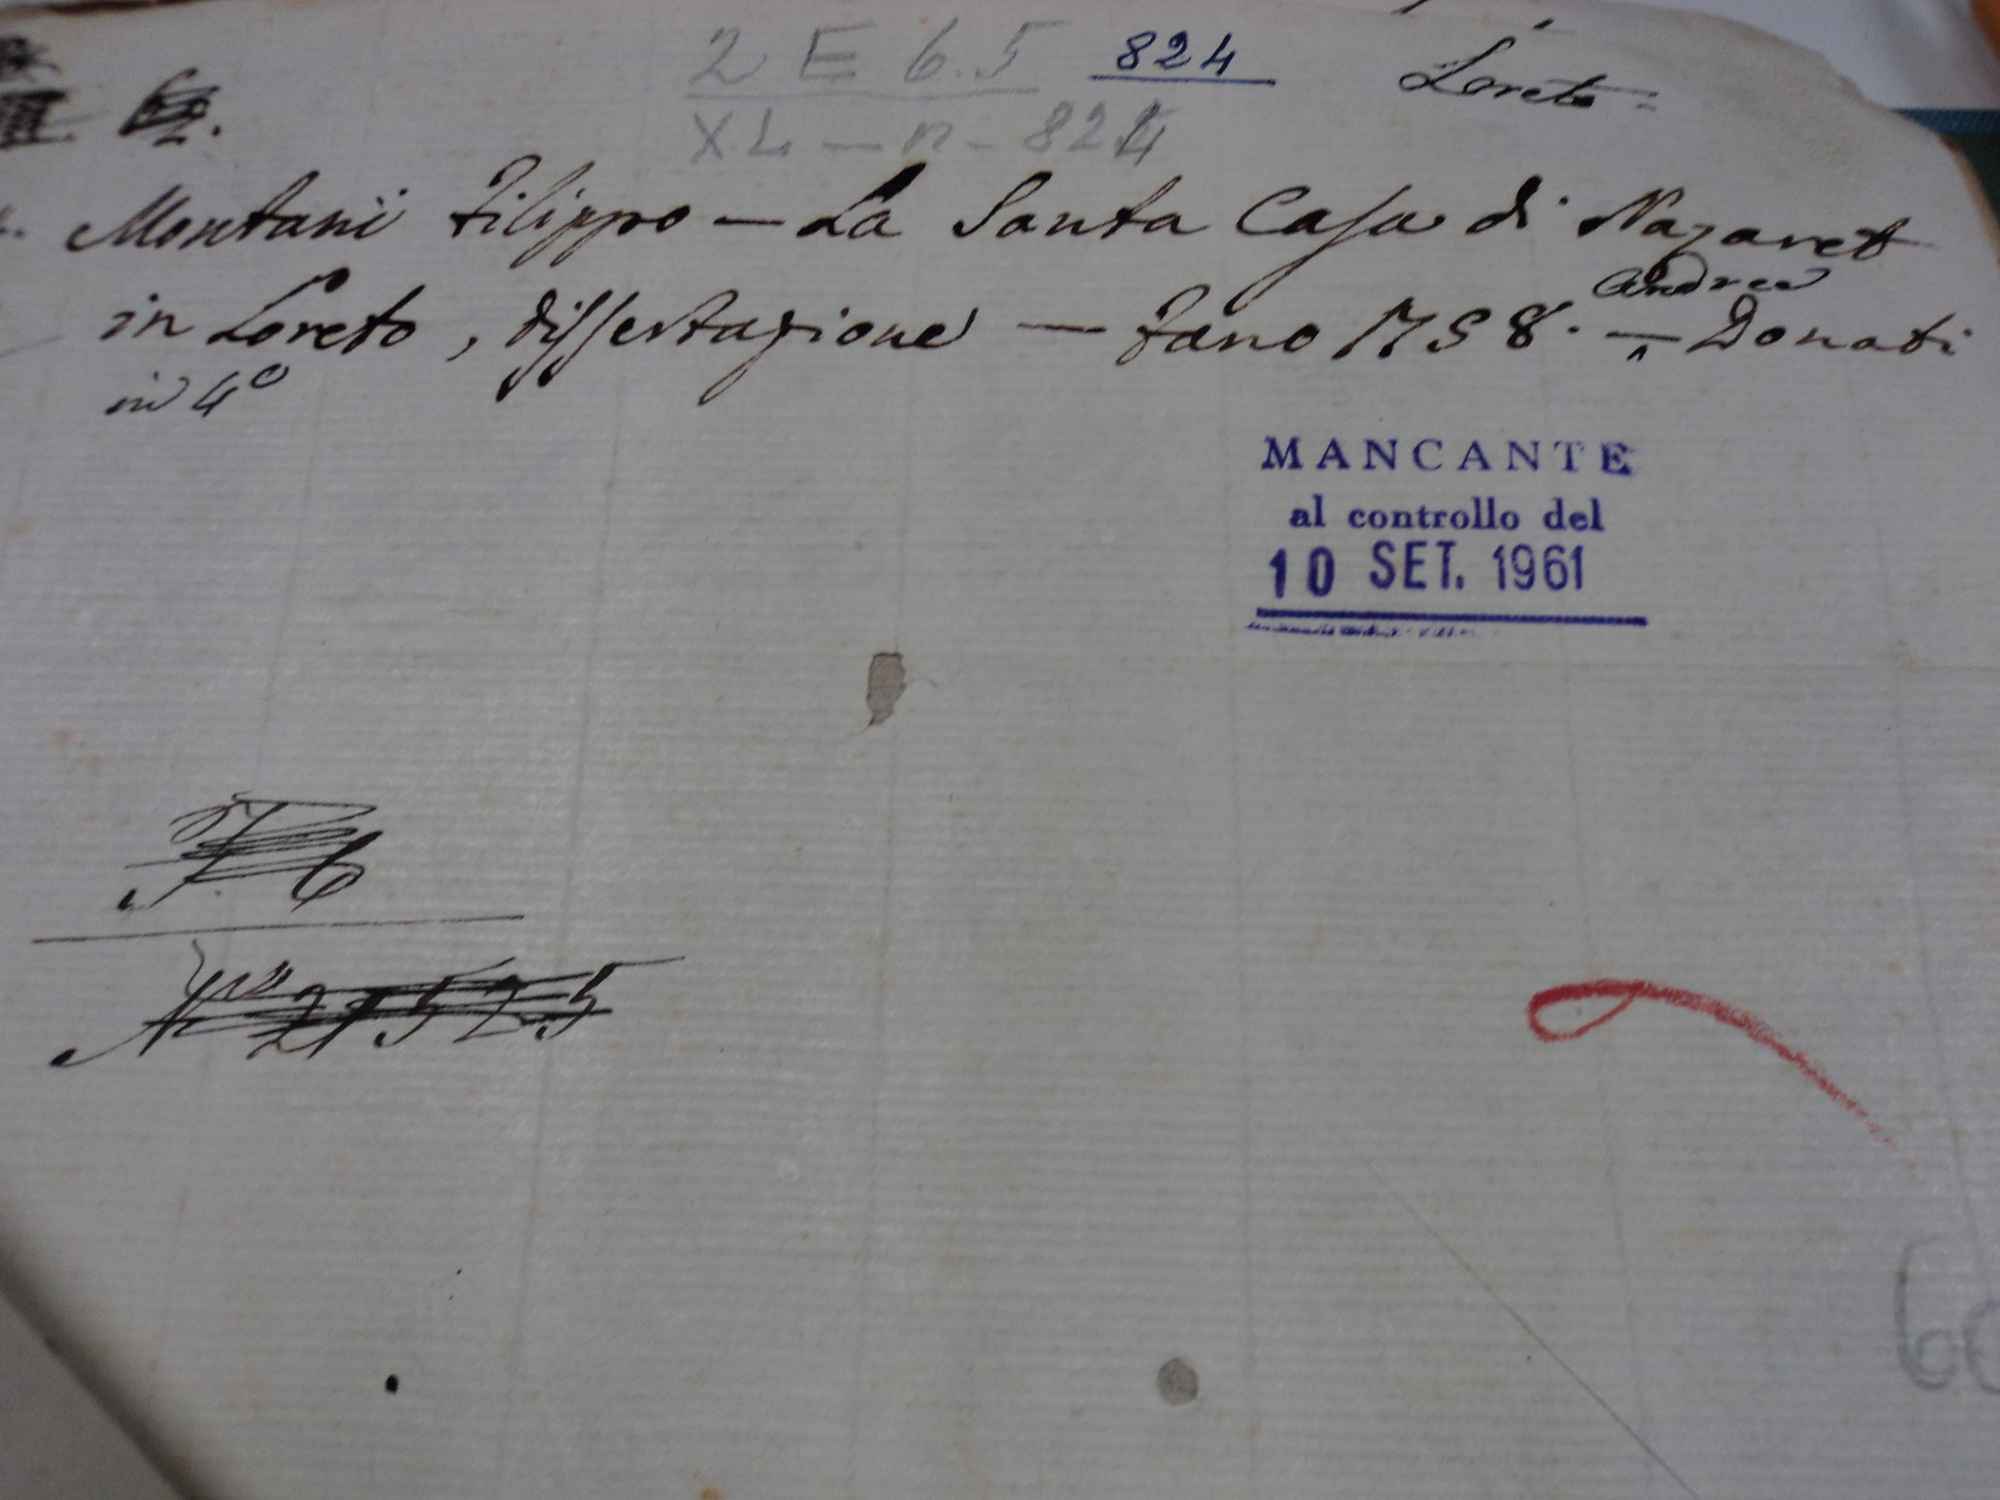 2 E 6.5 824 Loreto
XL - n - 824
Montani Filippo - La Santa Casa di Nazaret
in Loreto, dissertazione - Fano 1758. - Andrea Donati
in 4°
MANCANTE
al controllo del
10 SET. 1961
N° 21525